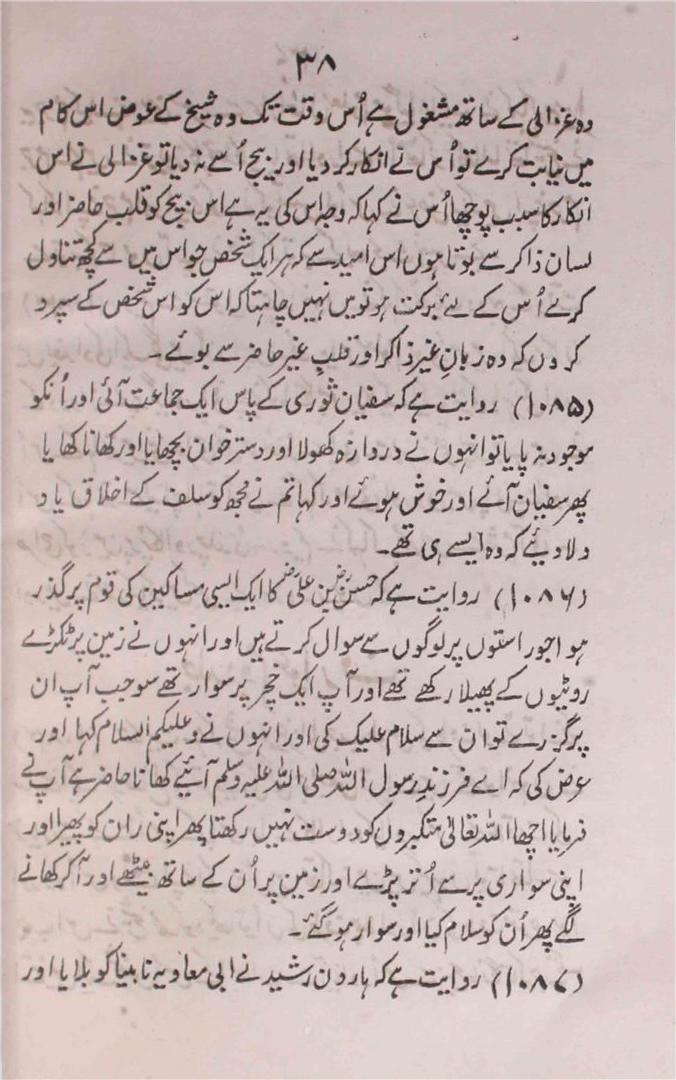 ۳۸
وہ غزالی کے ساتھ مشغول ہے اُس وقت تک وہ شیخ کے عوض اس کام
میں نیابت کرے تو اُس نے انکار کر دیا اور بیج اُسے نہ دیا تو غزالی نے اس
انکار کا سبب پوچھا اُس نے کہا کہ وجہ اس کی یہ ہے اس بیج کو قلب حاضر اور
لسان ذاکر سے بوتا ہوں اس امید سے کہ ہر ایک شخص جو اس میں سے کچھ تناول
کرے اُس کے لئے برکت ہو تو میں نہیں چاہتا کہ اس کو اس شخص کے سپرد
کروں کہ وہ زبانِ غیر ذاکر اور قلبِ غیر حاضر سے بوئے۔
(۱۰۸۵) روایت ہے کہ سفیان ثوری کے پاس ایک جماعت آئی اور اُنکو
موجود نہ پایا تو انہوں نے دروازہ کھولا اور دسترخوان بچھایا اور کھانا کھایا
پھر سفیان آئے اور خوش ہوئے اور کہا تم نے مجھ کو سلف کے اخلاق یاد
دلا دیئے کہ وہ ایسے ہی تھے۔
(۱۰۸۶) روایت ہے کہ حسنؓ بن علیؓ کا ایک ایسی مساکین کی قوم پر گذر
ہوا جو راستوں پر لوگوں سے سوال کرتے ہیں اور انہوں نے زمین پر ٹکڑے
روٹیوں کے پھیلا رکھے تھے اور آپ ایک خچر پر سوار تھے سو جب آپ ان
پر گزرے تو ان سے سلام علیک کی اور انہوں نے وعلیکم السلام کہا اور
عرض کی کہ اے فرزندِ رسول اللہ صلی اللہ علیہ وسلم آئیے کھانا حاضر ہے آپ نے
فرمایا اچھا اللہ تعالیٰ متکبروں کو دوست نہیں رکھتا پھر اپنی ران کو پھیرا اور
اپنی سواری پر سے اُتر پڑے اور زمین پر اُن کے ساتھ بیٹھے اور آکر کھانے
لگے پھر اُن کو سلام کیا اور سوار ہو گئے۔
(۱۰۸۷) روایت ہے کہ ہارون رشید نے ابی معاویہ نابینا کو بلایا اور